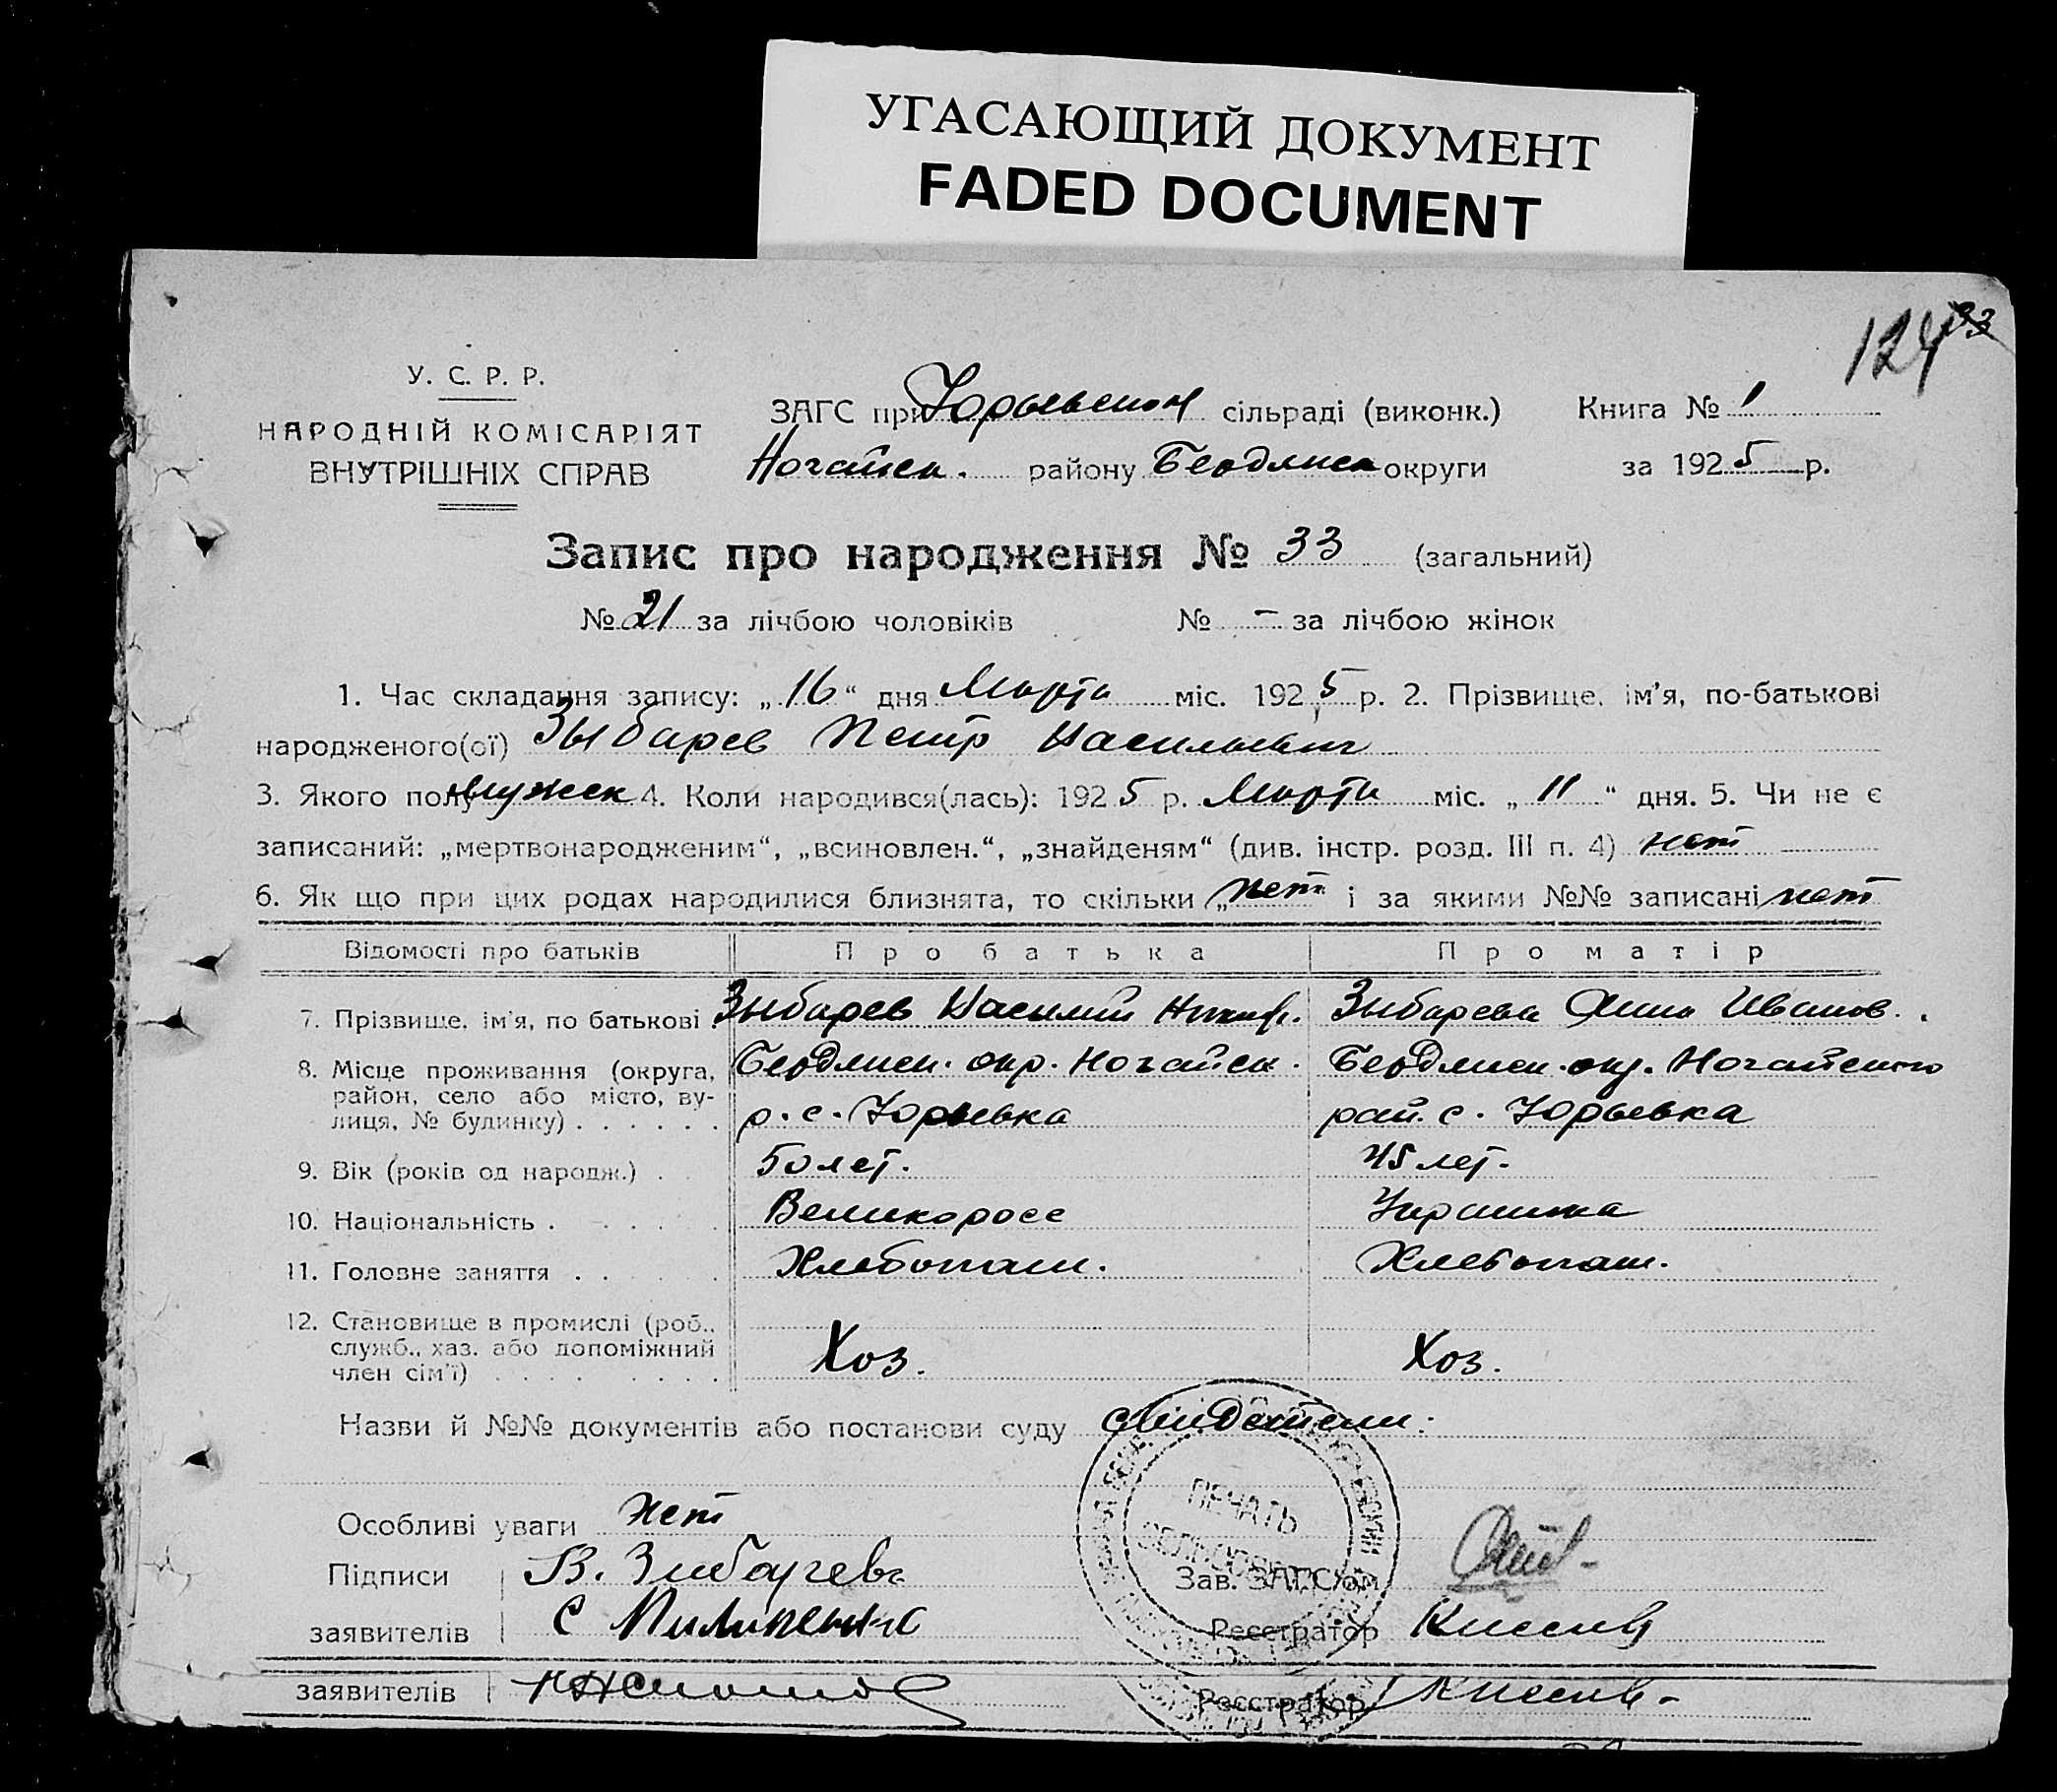 УГАСАЮЩИЙ ДОКУМЕНТ
FADED DOCUMENT
124 33
У. С. Р. Р.
НАРОДНІЙ КОМІСАРІЯТ
ВНУТРІШНІХ СПРАВ
ЗАГС при Юрьевском сільраді (виконк.) Книга № 1
Ногайск. району Бердянск округи за 1925 р.
Запис про народження № 33 (загальний)
№ 21 за лічбою чоловіків № – за лічбою жінок
1. Час складання запису: „16“ дня Марта міс. 1925 р. 2. Прізвище, ім'я, по-батькові
народженого(ої) Зыбарев Петр Васильевич
3. Якого полу мужск 4. Коли народився(лась): 1925 р. Марта міс. „11“ дня. 5. Чи не є
записаний: „мертвонародженим“, „всиновлен.“, „знайденям“ (див. інстр. розд. III п. 4) нет
6. Як що при цих родах народилися близнята, то скільки „нет“ і за якими №№ записані нет
Відомості про батьків Про батька Про матір
7. Прізвище, ім'я, по батькові Зыбарев Василий Никиф. Зыбарева Анна Иванов.
8. Місце проживання (округа, Бердянск. окр. Ногайск. Бердянск. окр. Ногайского
район, село або місто, ву-
лиця, № будинку) р. с. Юрьевка рай. с. Юрьевка
9. Вік (років од народж.) 50 лет. 45 лет.
10. Національність Великоросс Украинка
11. Головне заняття Хлебопаш. Хлебопаш.
12. Становище в промислі (роб.,
служб., хаз. або допоміжний
член сім'ї) Хоз. Хоз.
Назви й №№ документів або постанови суду свидетели:
ПЕЧАТЬ
СЕЛЬСОВЕТА
Особливі уваги нет
Підписи В. Зибарев Зав. ЗАГС'ом
заявителів С Пилипенко Реєстратор
заявителів Реєстратор